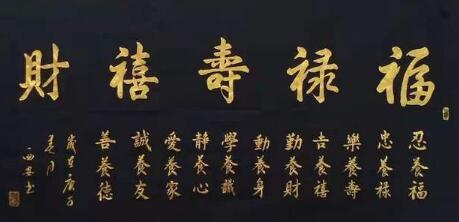 福禄壽禧財
忍養福
忠養禄
樂養壽
吉養禧
勤養財
動養身
學養識
靜養心
愛養家
誠養友
善養德
歲在庚子